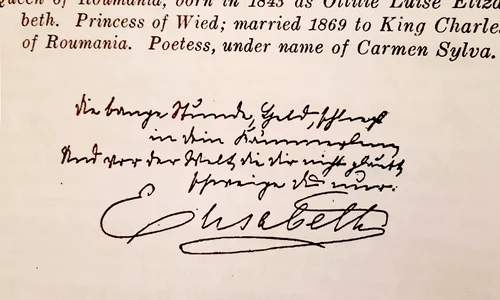 Queen of Roumania, born in 1843 as Ottilie Luise Eliza
beth. Princess of Wied; married 1869 to King Charles
of Roumania. Poetess, under name of Carmen Sylva.
die bange Stunde,
in dein Kämmerlein
Und vor der Welt die dir nicht glaubt
schweige du nur.
Elisabeth